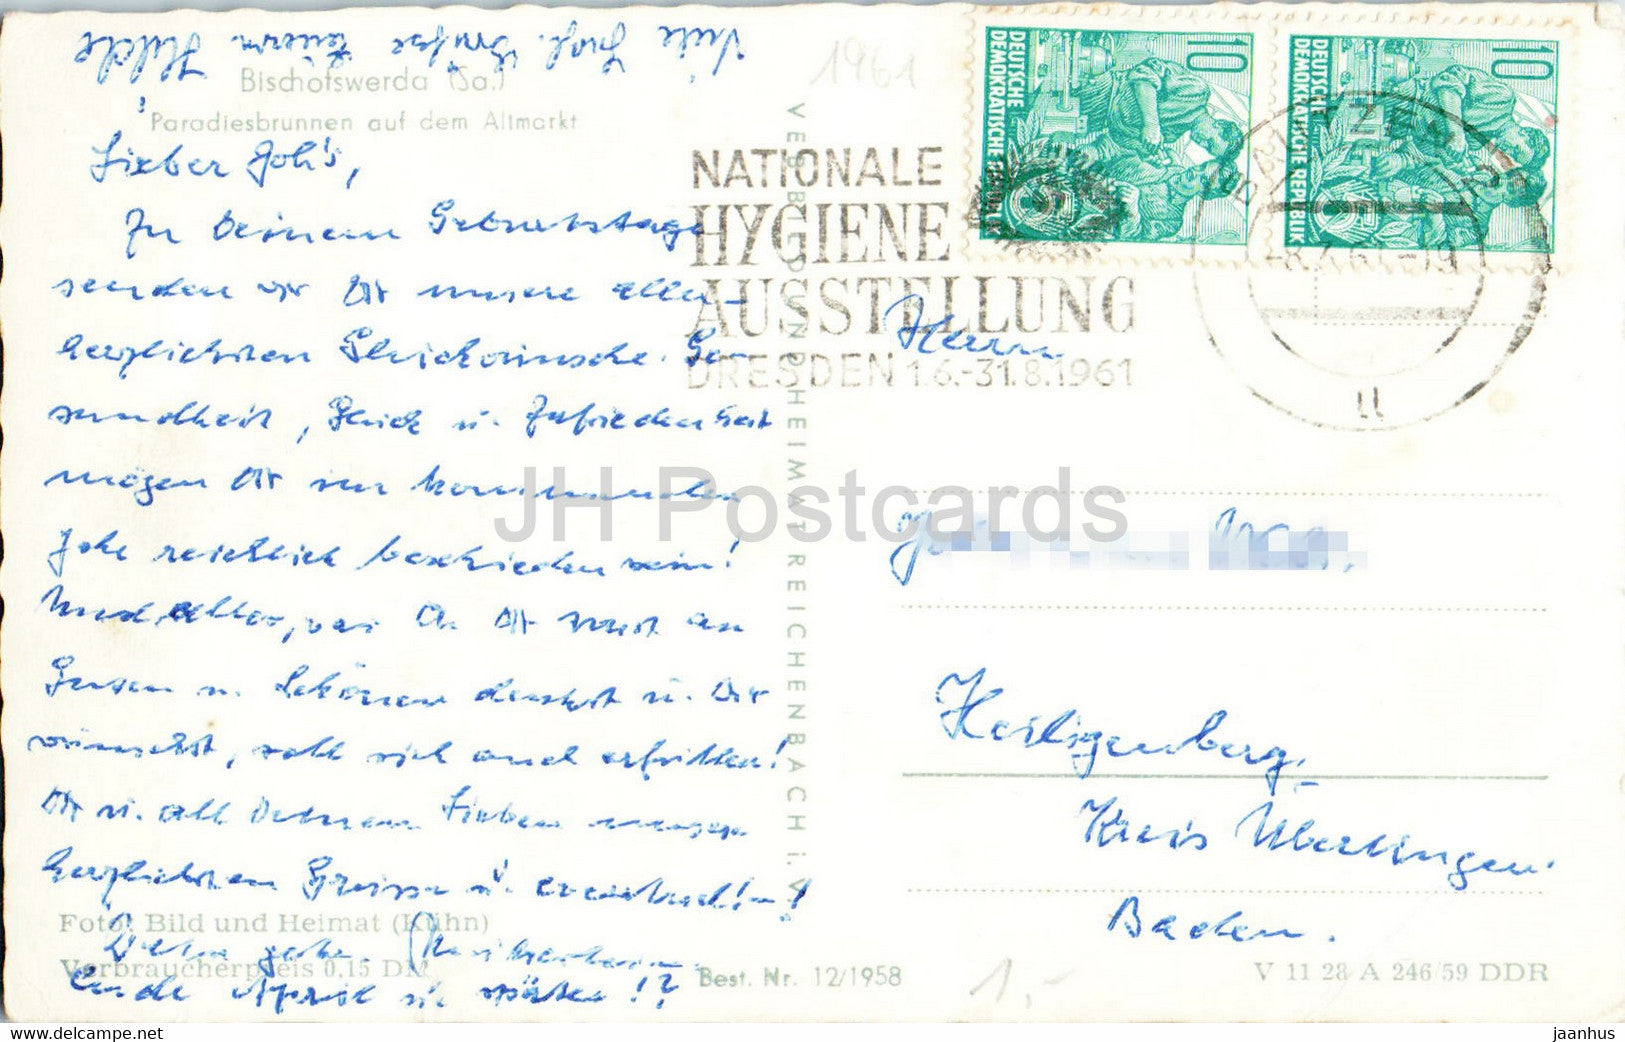 Viele frohe Grüße Euern Hilde
Bischofswerda (Sa.)
Paradiesbrunnen auf dem Altmarkt
Lieber Joh's,
Zu Deinem Geburtstage
senden wir Dir unsere aller-
herzlichsten Glückwünsche. Ge-
sundheit, Glück u. Zufriedenheit
mögen Dir im kommenden
Jahr reichlich beschieden sein!
Und alles, was Du Dir sonst an
Gutem u. Schönem denkst u. Dir
wünschst, soll sich auch erfüllen!
Dir u. all Deinen Lieben unsere
herzlichsten Grüsse u.
Foto: Bild und Heimat (Kühn)
Dein
Verbraucherpreis 0,15 DM
Ende April u. später!?
VEB BILD UND HEIMAT REICHENBACH i. V.
Best. Nr. 12/1958
1961
NATIONALE
HYGIENE
AUSSTELLUNG
DRESDEN 1.6.-31.8.1961
10
DEUTSCHE
DEMOKRATISCHE REPUBLIK
10
DEUTSCHE
DEMOKRATISCHE REPUBLIK
BAUTZEN 2
-8.7.61-19
u
Herrn
Heiligenberg,
Kreis Überlingen
Baden.
1,-
V 11 28 A 246/59 DDR
JH Postcards
www.delcampe.net
jaanhus